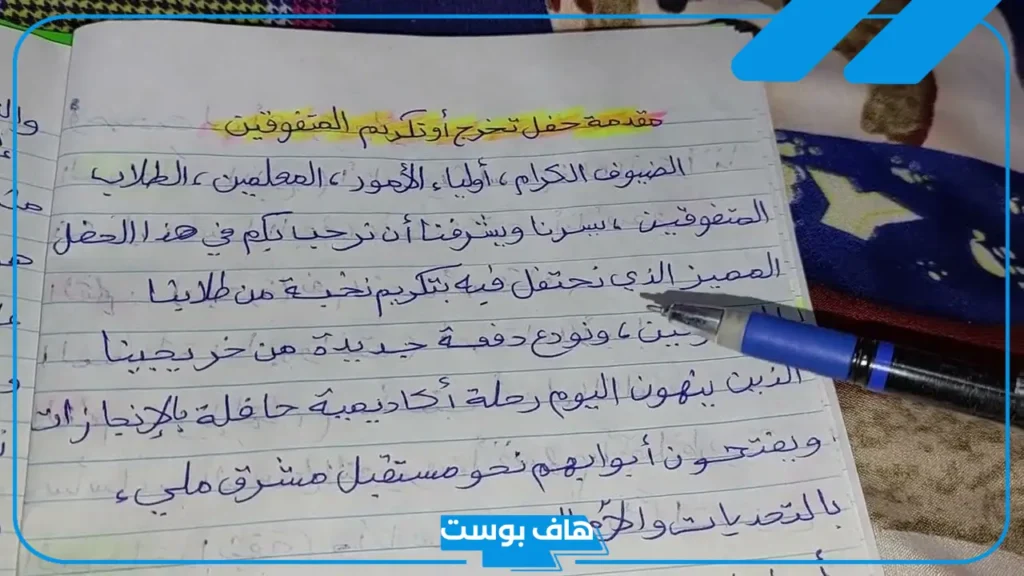 مقدمة حفل تخرج أو تكريم المتفوقين
الضيوف الكرام ، أولياء الأمور ، المعلمين ، الطلاب
المتفوقين ، يسرنا ويشرفنا أن نرحب بكم في هذا الحفل
المميز الذي نحتفل فيه بتكريم نخبة من طلابنا
، ونودع دفعة جديدة من خريجينا
الذين ينهون اليوم رحلة أكاديمية حافلة بالإنجازات
ويفتحون أبوابهم نحو مستقبل مشرق مليء
بالتحديات
هاف بوست